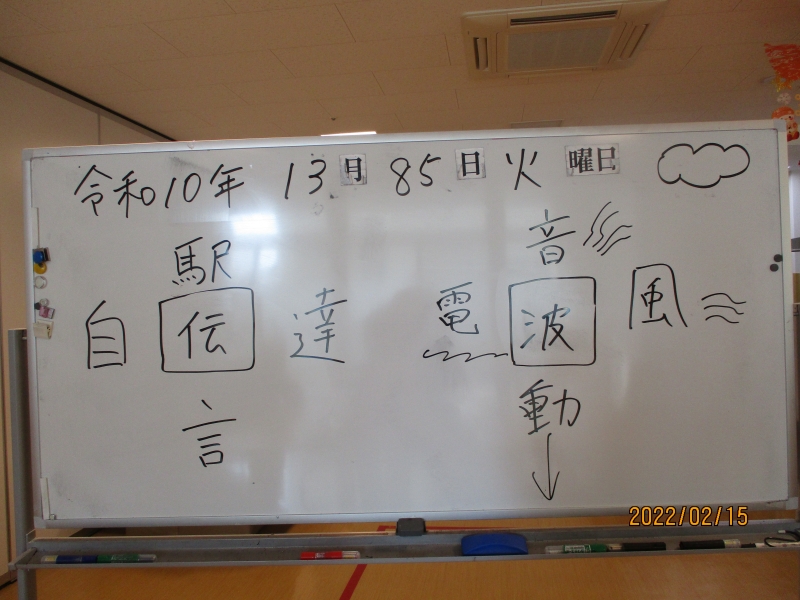 令和10年 13月 85日 火曜日
駅
自 伝 達
言
音
電 波 風
動
2022/02/15